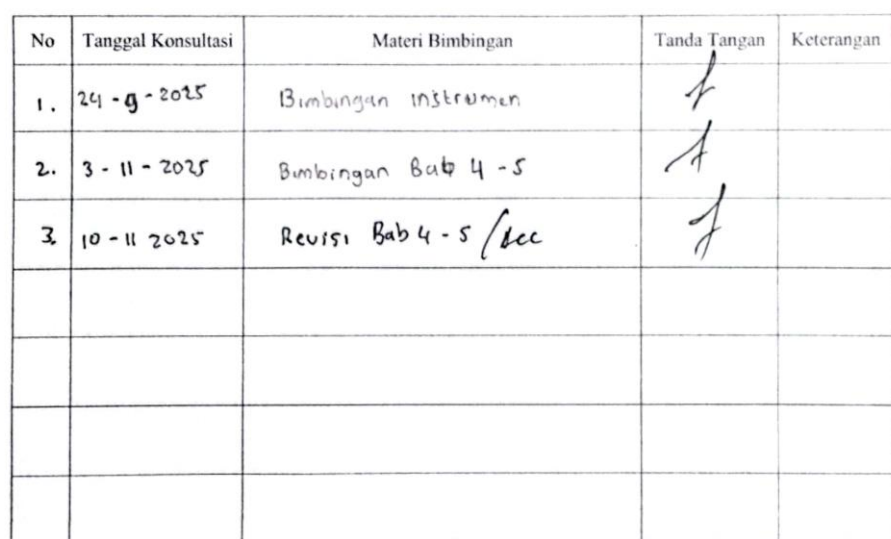 No Tanggal Konsultasi Materi Bimbingan Tanda Tangan Keterangan
1. 24-9-2025 Bimbingan instrumen
2. 3-11-2025 Bimbingan Bab 4-5
3. 10-11 2025 Revisi Bab 4-5 /Acc